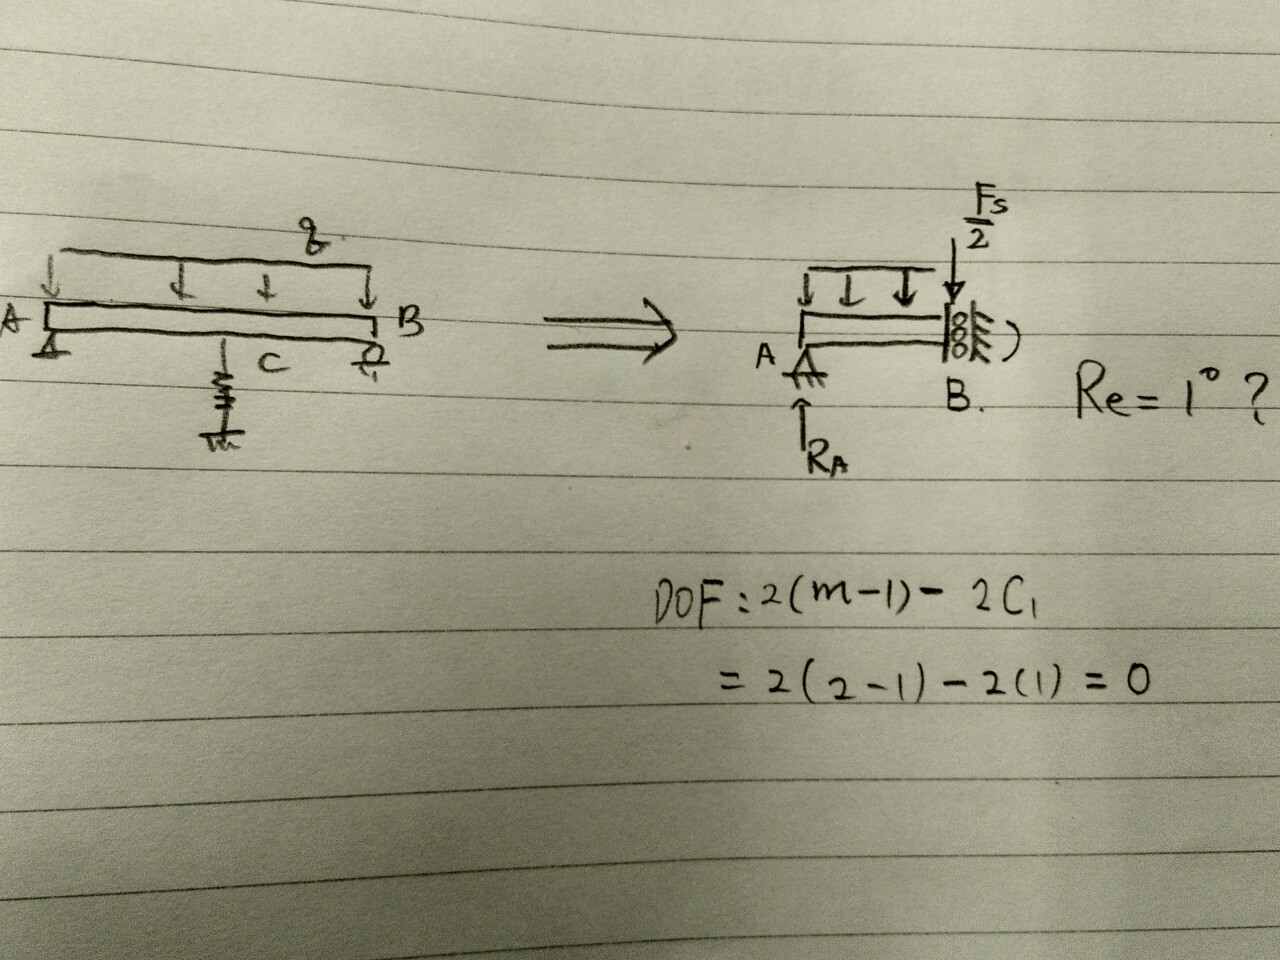 q
A B
C
Fs/2
A
B.
RA
Re = 1° ?
DOF : 2(m-1) - 2C₁
= 2(2-1) - 2(1) = 0